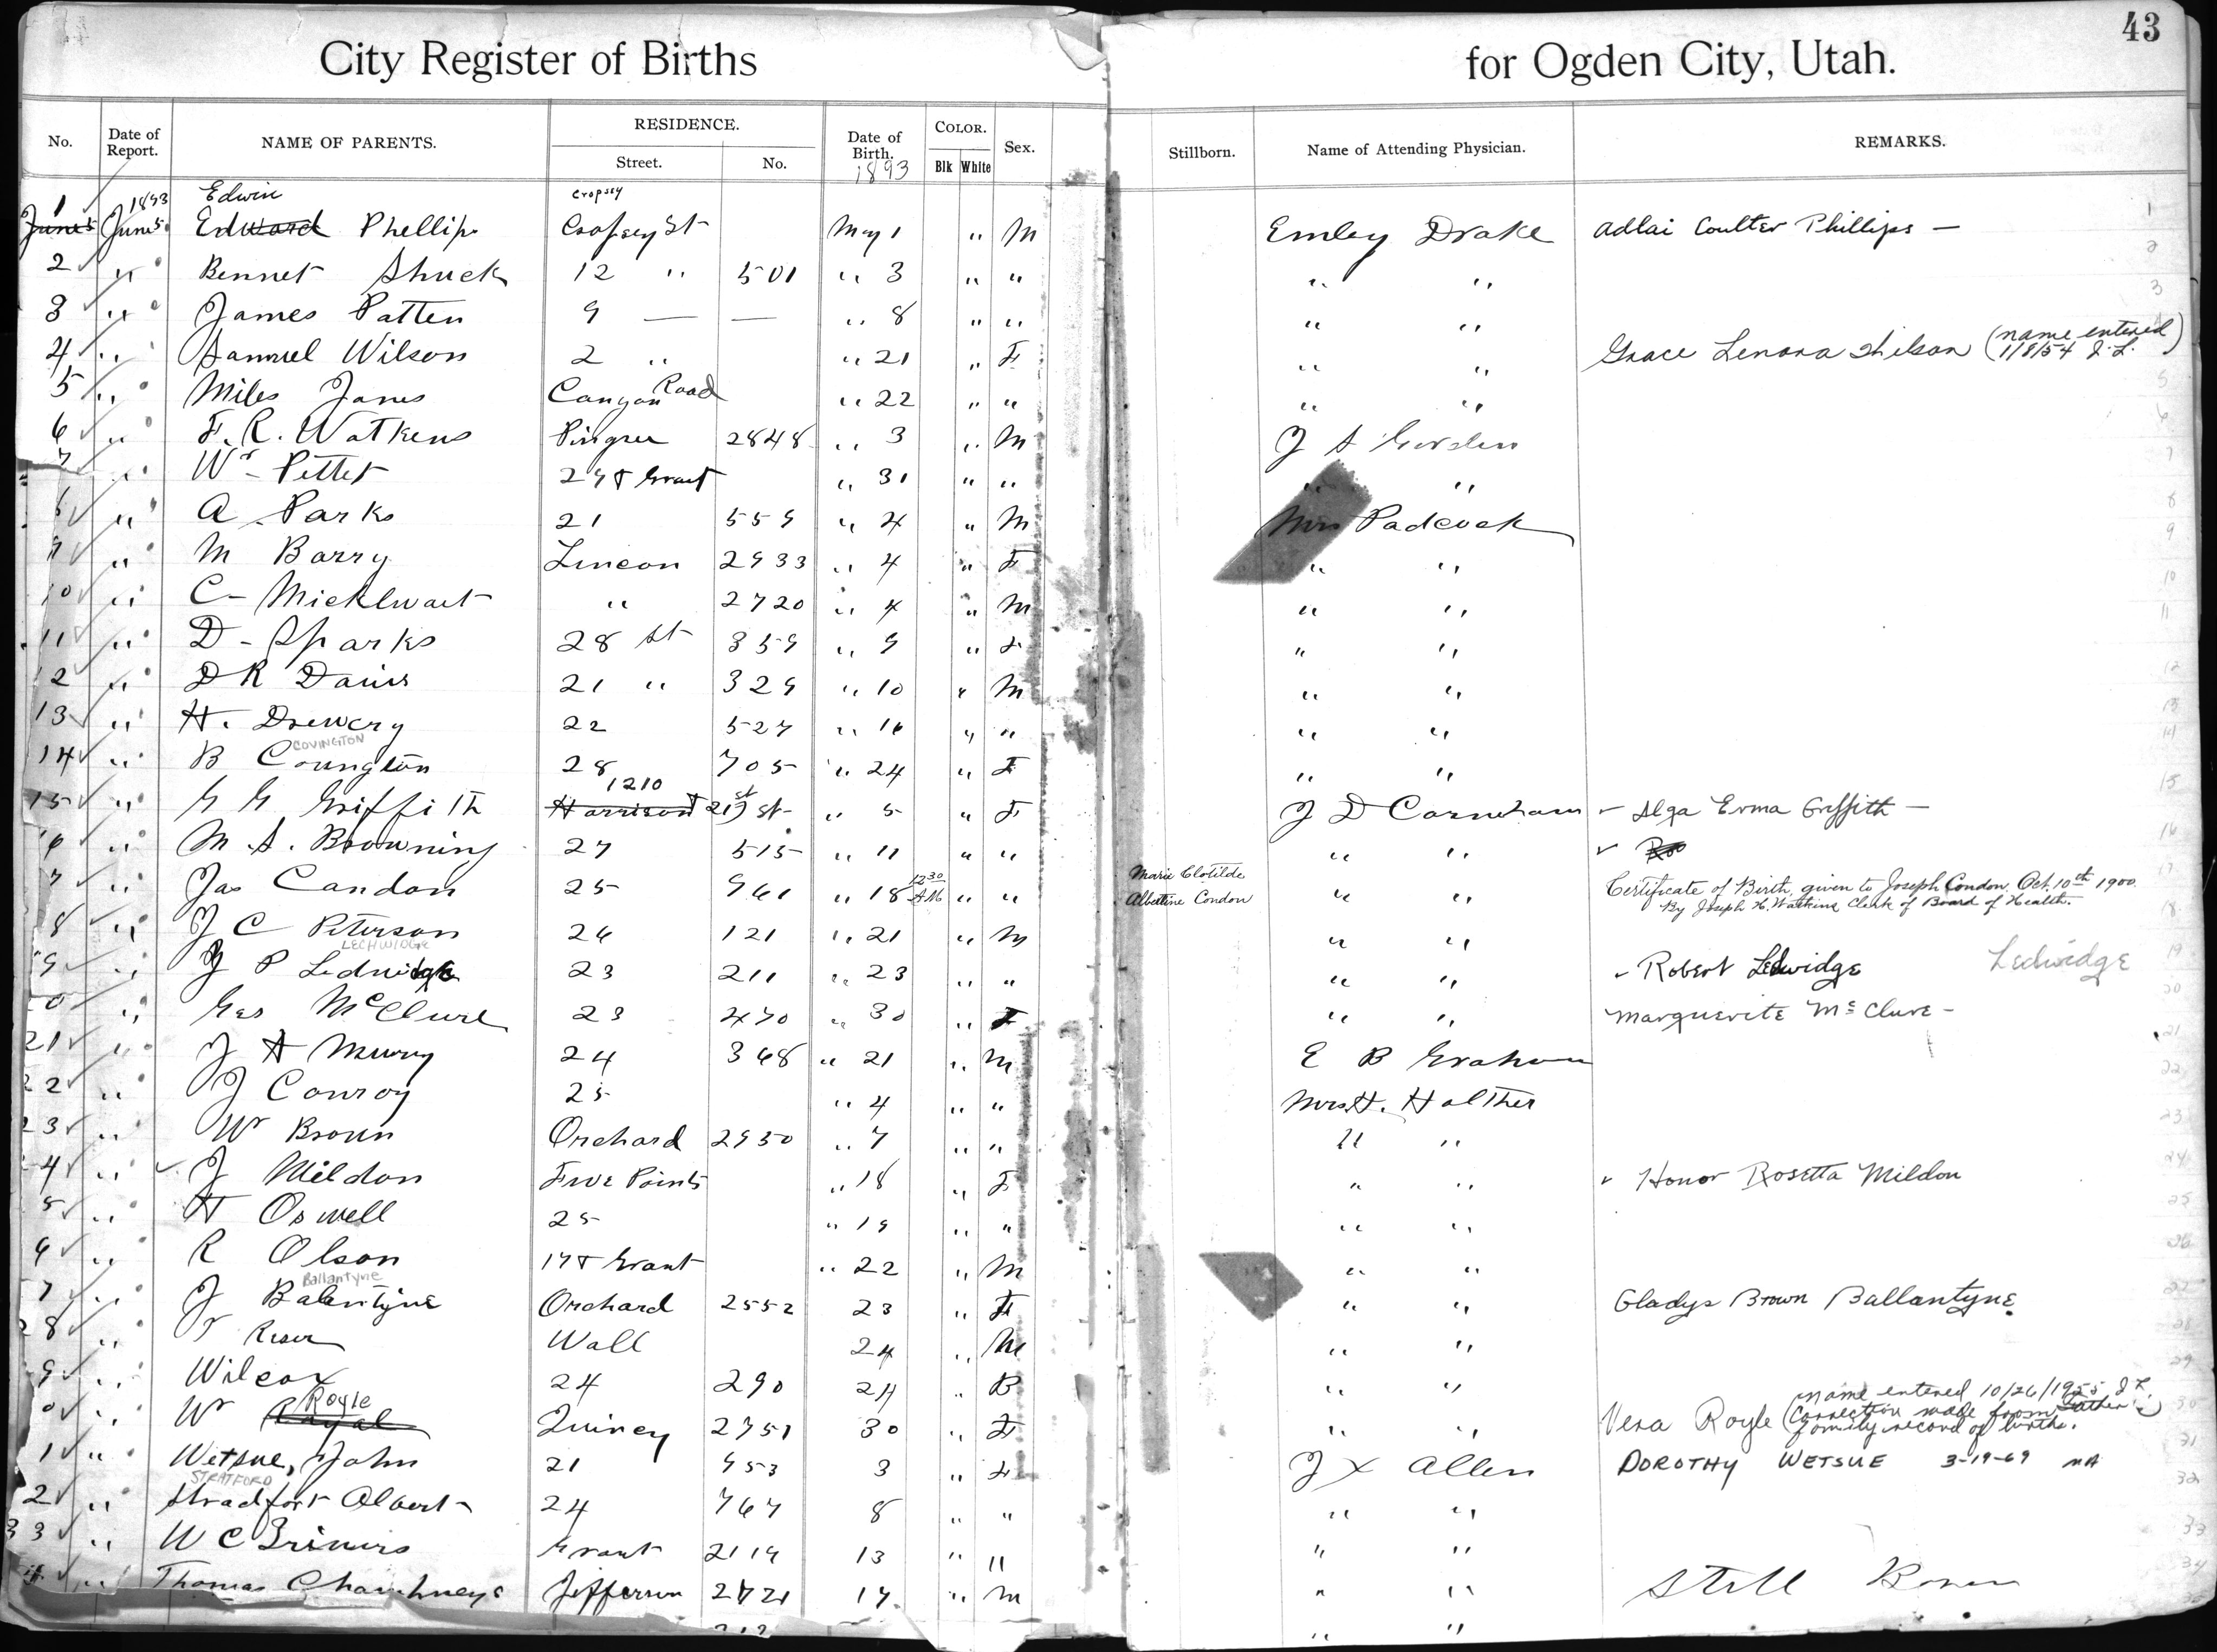 43
City Register of Births for Ogden City, Utah.
No. Date of Report. NAME OF PARENTS. RESIDENCE. Street. No. Date of Birth. 1893 COLOR. Blk White Sex. Stillborn. Name of Attending Physician. REMARKS.
1 1893 Edwin Cropsey
June 5 June 5 Edward Phellips Cropsey St May 1 " M Emley Drake Adlai Coulter Phillips —
2 " Bennet Shuck 12 " 501 " 3 " " " "
3 " James Patten 9 — — " 8 " " " "
4 " Samuel Wilson 2 " " 21 " F " " Grace Lenora Wilson (name entered 1/8/54 J.L.)
5 " Miles Jones Canyon Road " 22 " " " "
6 " F. R. Watkens Pingree 2848 " 3 " M J A Gorden
7 " Wm Pettet 29 & Grant " 31 " " " "
8 " A. Parks 21 559 " 4 " M Mrs Padcock
9 " M Barry Lincon 2933 " 4 " F " "
10 " C - Micklwait " 2720 " 4 " M " "
11 " D - Sparks 28 St 359 " 9 " F " "
12 " D R Davis 21 " 329 " 10 " M " "
13 " H. Drewery 22 527 " 16 " " " "
COVINGTON
14 " B Covington 28 705 " 24 " F " "
1210
15 " G G Griffith Harrison 21st St " 5 " F J D Carnahan - Alga Erma Griffith —
16 " M. A. Browning 27 515 " 11 " " " "
17 " Jas Candon 25 961 " 18 12 30 AM " " Marie Clotilde Albertine Condon " " Certificate of Birth, given to Joseph Condon. Oct. 10th 1900.
By Joseph H. Watkins Clerk of Board of Health.
18 " J C Peterson 26 121 " 21 " M " "
LECHWIDGE
19 " J P Ledwidge 23 211 " 23 " " " " - Robert Ledwidge Ledwidge
20 " Geo McClure 23 470 " 30 " F " " Marguerite McClure -
21 " J A Murry 24 368 " 21 " M E B Graham
22 " J Conroy 25 " 4 " " Mrs H. Halther
23 " Wm Broun Orchard 2950 " 7 " " " "
24 " J Mildon Five Points " 18 " F " " Honor Rosetta Mildon
25 " H Oswell 25 " 19 " " " "
26 " R Olson 17 & Grant " 22 " M " "
Ballantyne
27 " J Balentyne Orchard 2552 23 " F " " Gladys Brown Ballantyne
28 " T Reser Wall 24 " M " "
29 " Wilcox 24 290 24 " B " "
30 " Wm Royal Royle Quincy 2751 30 " F " " Vera Royle (name entered 10/26/1955 J.L. Correction made from father's family record of birth.)
31 " Wetsue, John 21 953 3 " F J X Allen DOROTHY WETSUE 3-19-69 MA
STRATFORD
32 " Stradfort Albert 24 767 8 " " " "
33 " W C Griners Grant 2119 13 " " " "
34 " Thomas Champneys Jefferson 2721 17 " M " " Still Born
" "